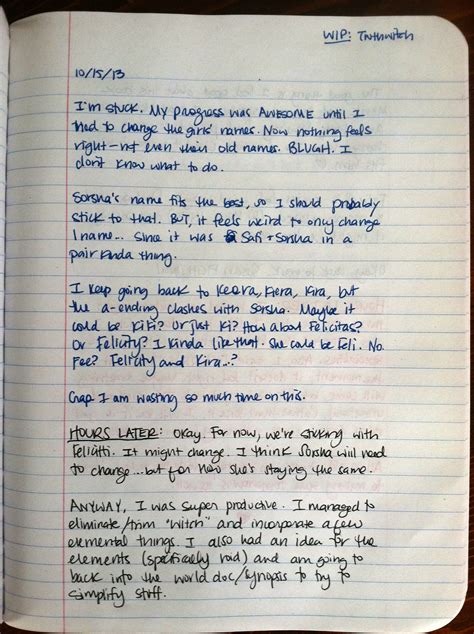 WIP: Truthwitch
10/15/13
I'm stuck. My progress was AWESOME until I
had to change the girls' names. Now nothing feels
right—not even their old names. BLUGH. I
don't know what to do.
Sorsha's name fits the best, so I should probably
stick to that. BUT, it feels weird to only change
1 name... since it was Safi + Sorsha in a
pair kinda thing.
I keep going back to Keara, Kiera, Kira, but
the a-ending clashes with Sorsha. Maybe it
could be Kiki? Or just Ki? How about Felicitas?
Or Felicity? I kinda like that. She could be Feli. No.
Fee? Felicity and Kira...?
Gap I am wasting so much time on this.
HOURS LATER: Okay. For now, we're sticking with
It might change. I think Sorsha will need
to change...but for now she's staying the same.
ANYWAY, I was super productive. I managed to
eliminate/trim "witch" and incorporate a few
elemental things. I also had an idea for the
elements (specifically void) and am going to
back into the world doc/synopsis to try to
simplify stuff.